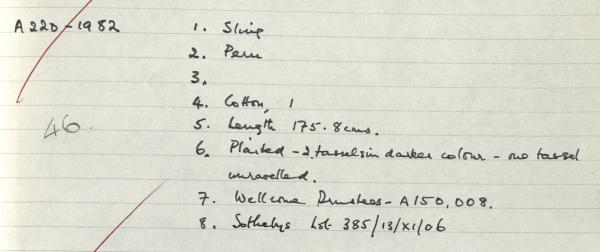 A 220-1982 1. Sling
2. Peru
3.
4. Cotton, 1
46. 5. Length 175.8cms.
6. Plaited - 2 tassels in darker colour - one tassel
unravelled.
7. Wellcome Trustees - A150,008.
8. Sothebys Lot 385/13/XI/06